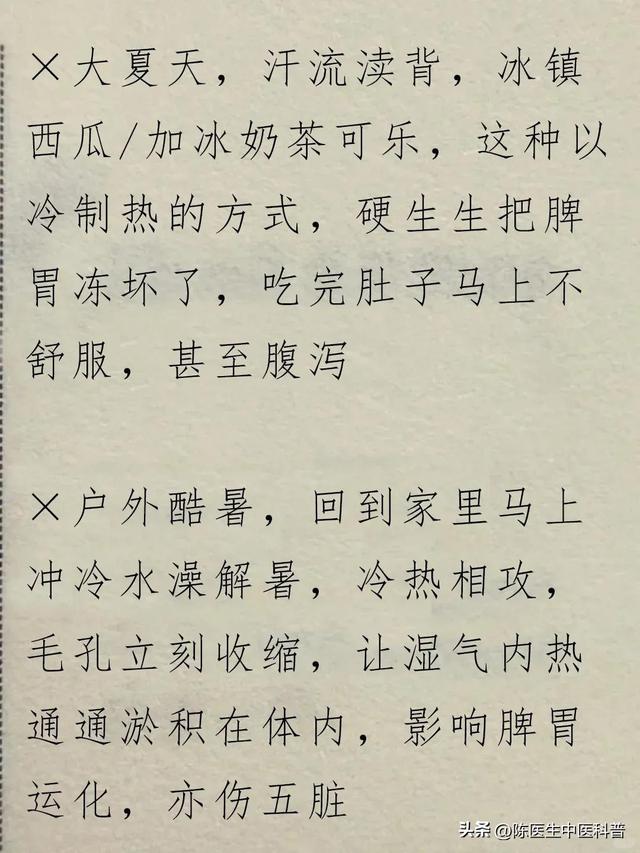 ×大夏天，汗流渎背，冰镇
西瓜/加冰奶茶可乐，这种以
冷制热的方式，硬生生把脾
胃冻坏了，吃完肚子马上不
舒服，甚至腹泻
×户外酷暑，回到家里马上
冲冷水澡解暑，冷热相攻，
毛孔立刻收缩，让湿气内热
通通淤积在体内，影响脾胃
运化，亦伤五脏
头条 @陈医生中医科普